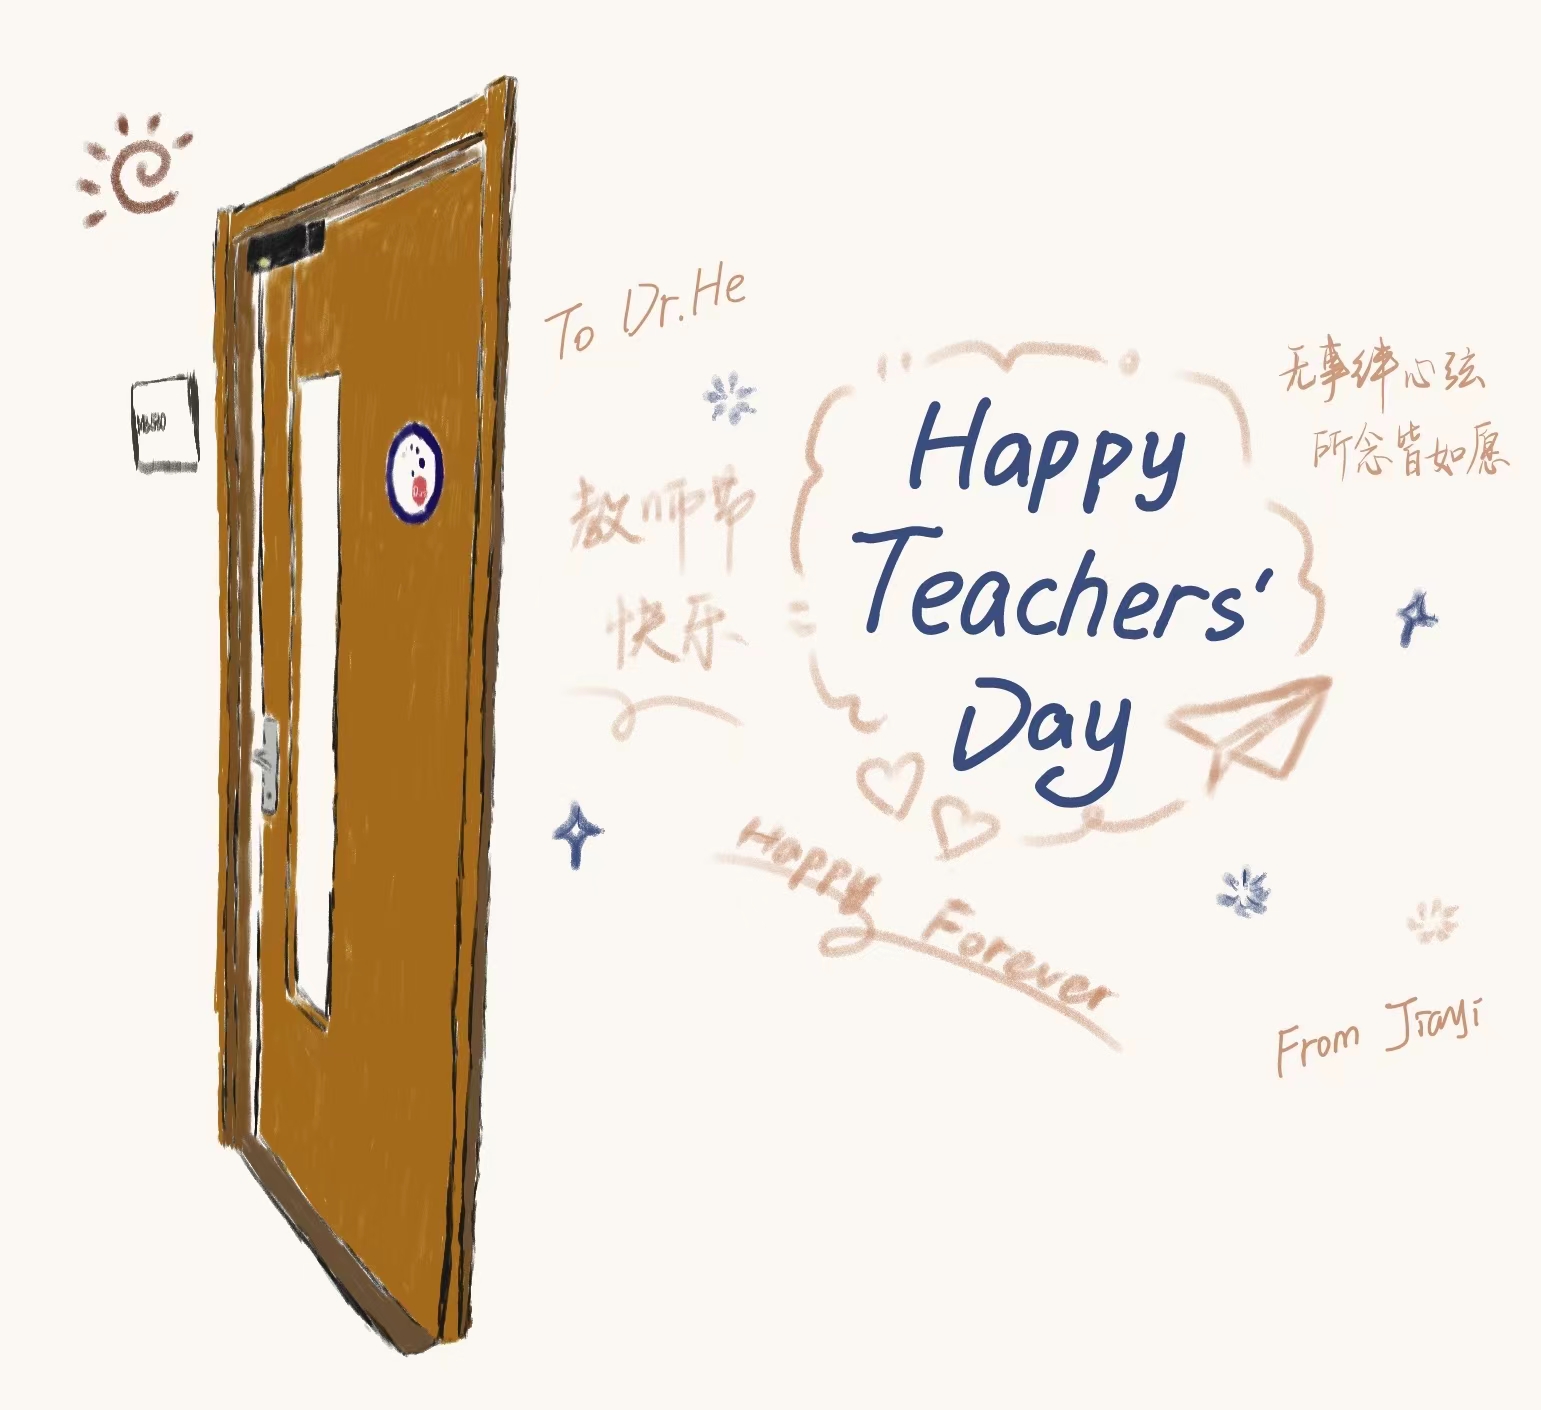 To Dr.He
教师节
快乐
Happy
Teachers'
Day
无事绊心弦
所念皆如愿
Happy Forever
From Jiayi